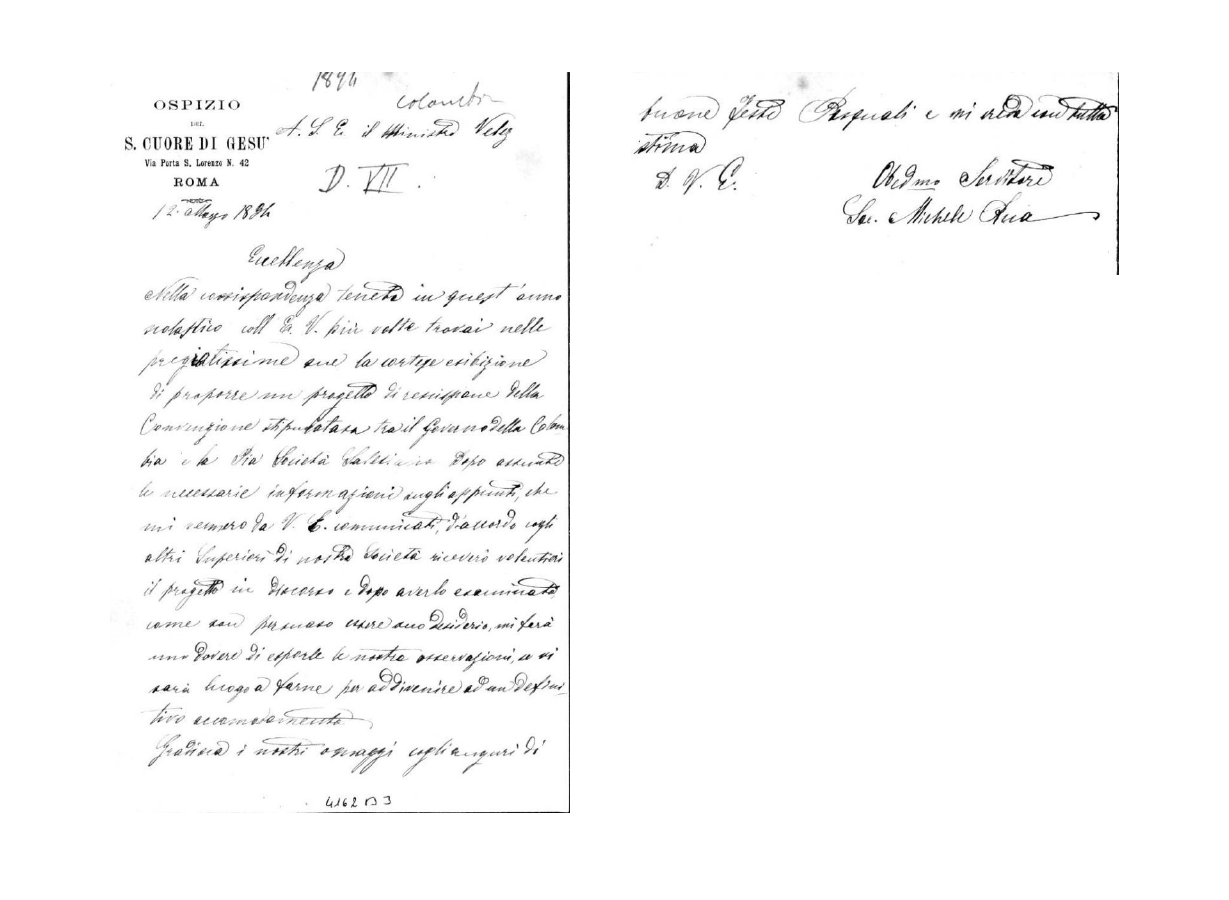 1894
Colombia
OSPIZIO
DEL
S. CUORE DI GESU'
Via Porta S. Lorenzo N. 42
ROMA
A. S. E. il Ministro Velez
D. VII.
12 Mayo 1894
Eccellenza
Nella corrispondenza tenuta in quest'anno
scolastico coll'E. V. più volte trovai nelle
pregiatissime sue la cortese esibizione
di proporre un progetto di revisione della
Convenzione stipulatasi tra il Governo della Colom-
bia e la Pia Società Salesiana. Dopo assunte
le necessarie informazioni sugli appunti, che
mi vennero da V. E. comunicati, d'accordo cogli
altri Superiori di nostra Società riceverò volentieri
il progetto in discorso e dopo averlo esaminato,
come son persuaso essere suo desiderio, mi farò
uno dovere di esporle le nostre osservazioni, se vi
sarà luogo a farne per addivenire ad un defini-
tivo accomodamento
Gradisca i nostri omaggi cogli auguri di
4162 B 3
buone Feste Pasquali e mi creda con tutta
stima
D. V. E.
Obb.mo Servitore
Sac. Michele Rua